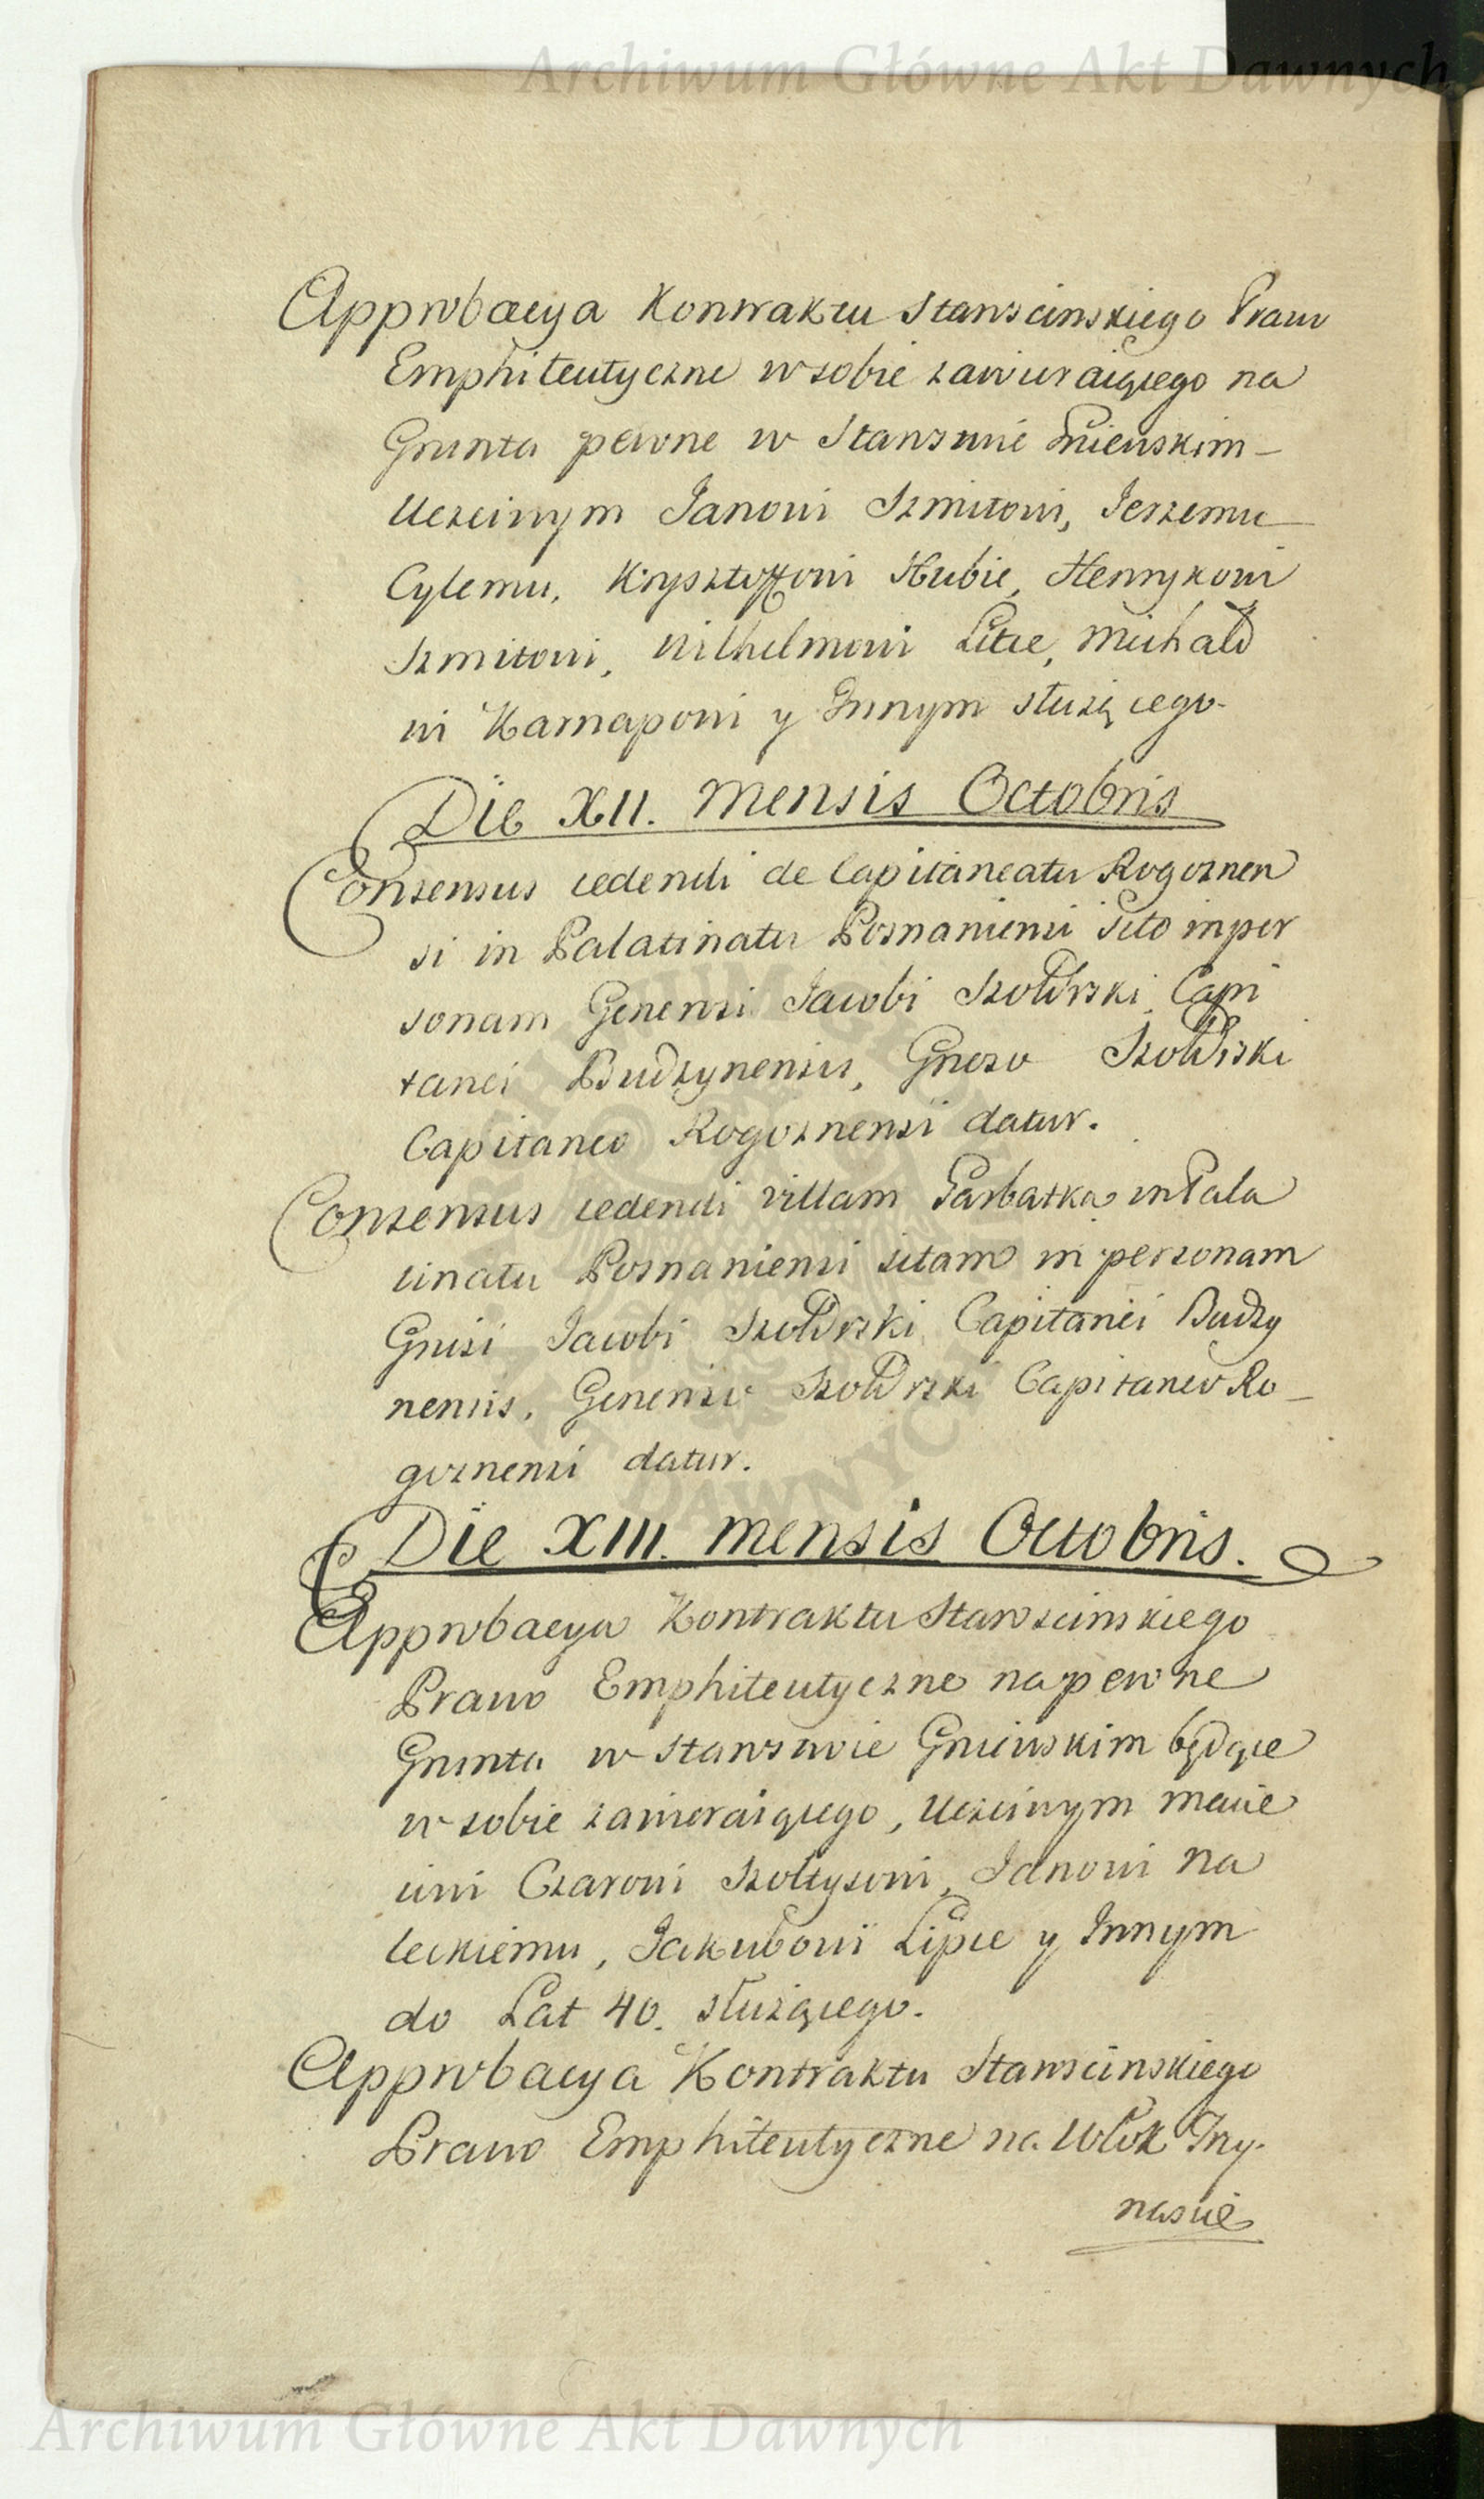 Archiwum Główne Akt Dawnych
Approbacya Kontraktu Starościnskiego Prawo
Emphiteutyczne w sobie zawieraiącego na
Grunta pewne w Starostwie Gniewskim
Uczciwym Janowi Szmitowi, Jerzemu
Cylemu, Krysztoffowi Hubie, Henrykowi
Szmitowi, Wilhelmowi Litce, Michało
wi Karnapowi y Innym służącego.
Die XII. Mensis Octobris
Consensus cedendi de Capitaneatu Rogoznen
si in Palatinatu Posnaniensi sito in per
sonam Generosi Jacobi Szołdrski, Capi
tanei Budzynensis, Gnoso Szołdrski
Capitaneo Rogoznensi datur.
Consensus cedendi villam Garbatka in Pala
tinatu Posnaniensi sitam in personam
Gnisi Jacobi Szołdrski Capitanei Budzy
nensis, Generoso Szołdrski Capitaneo Ro-
goznensi datur.
Die XIII. mensis Octobris.
Approbacya Kontraktu Starościnskiego
Prawo Emphiteutyczne na pewne
Grunta w Starostwie Gniewskim będące
w sobie zawieraiącego, Uczciwym Macie
iowi Czarowi Szołtysowi, Janowi Na
leckiemu, Jakubowi Lipce y Innym
do Lat 40. służącego.
Approbacya Kontraktu Starościnskiego
Prawo Emphiteutyczne na Włok Trzy-
nascie
Archiwum Główne Akt Dawnych